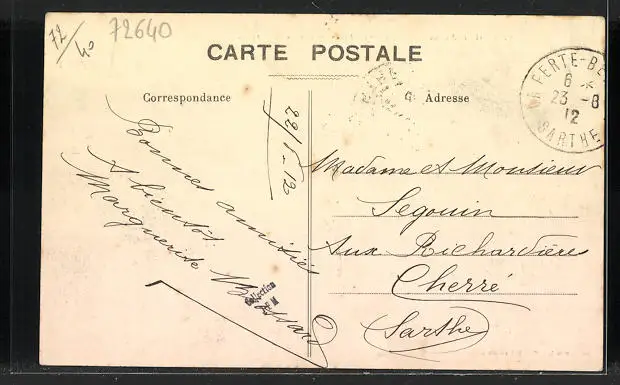 72
40
72640
CARTE POSTALE
Correspondance
Adresse
LA FERTE-BE
6 *
23 -8
12
SARTHE
22/8-12
Bonnes amitiés
A bientôt
Marguerite
Collection
Madame et Monsieur
Segouin
Aux Richardières
Cherré
Sarthe